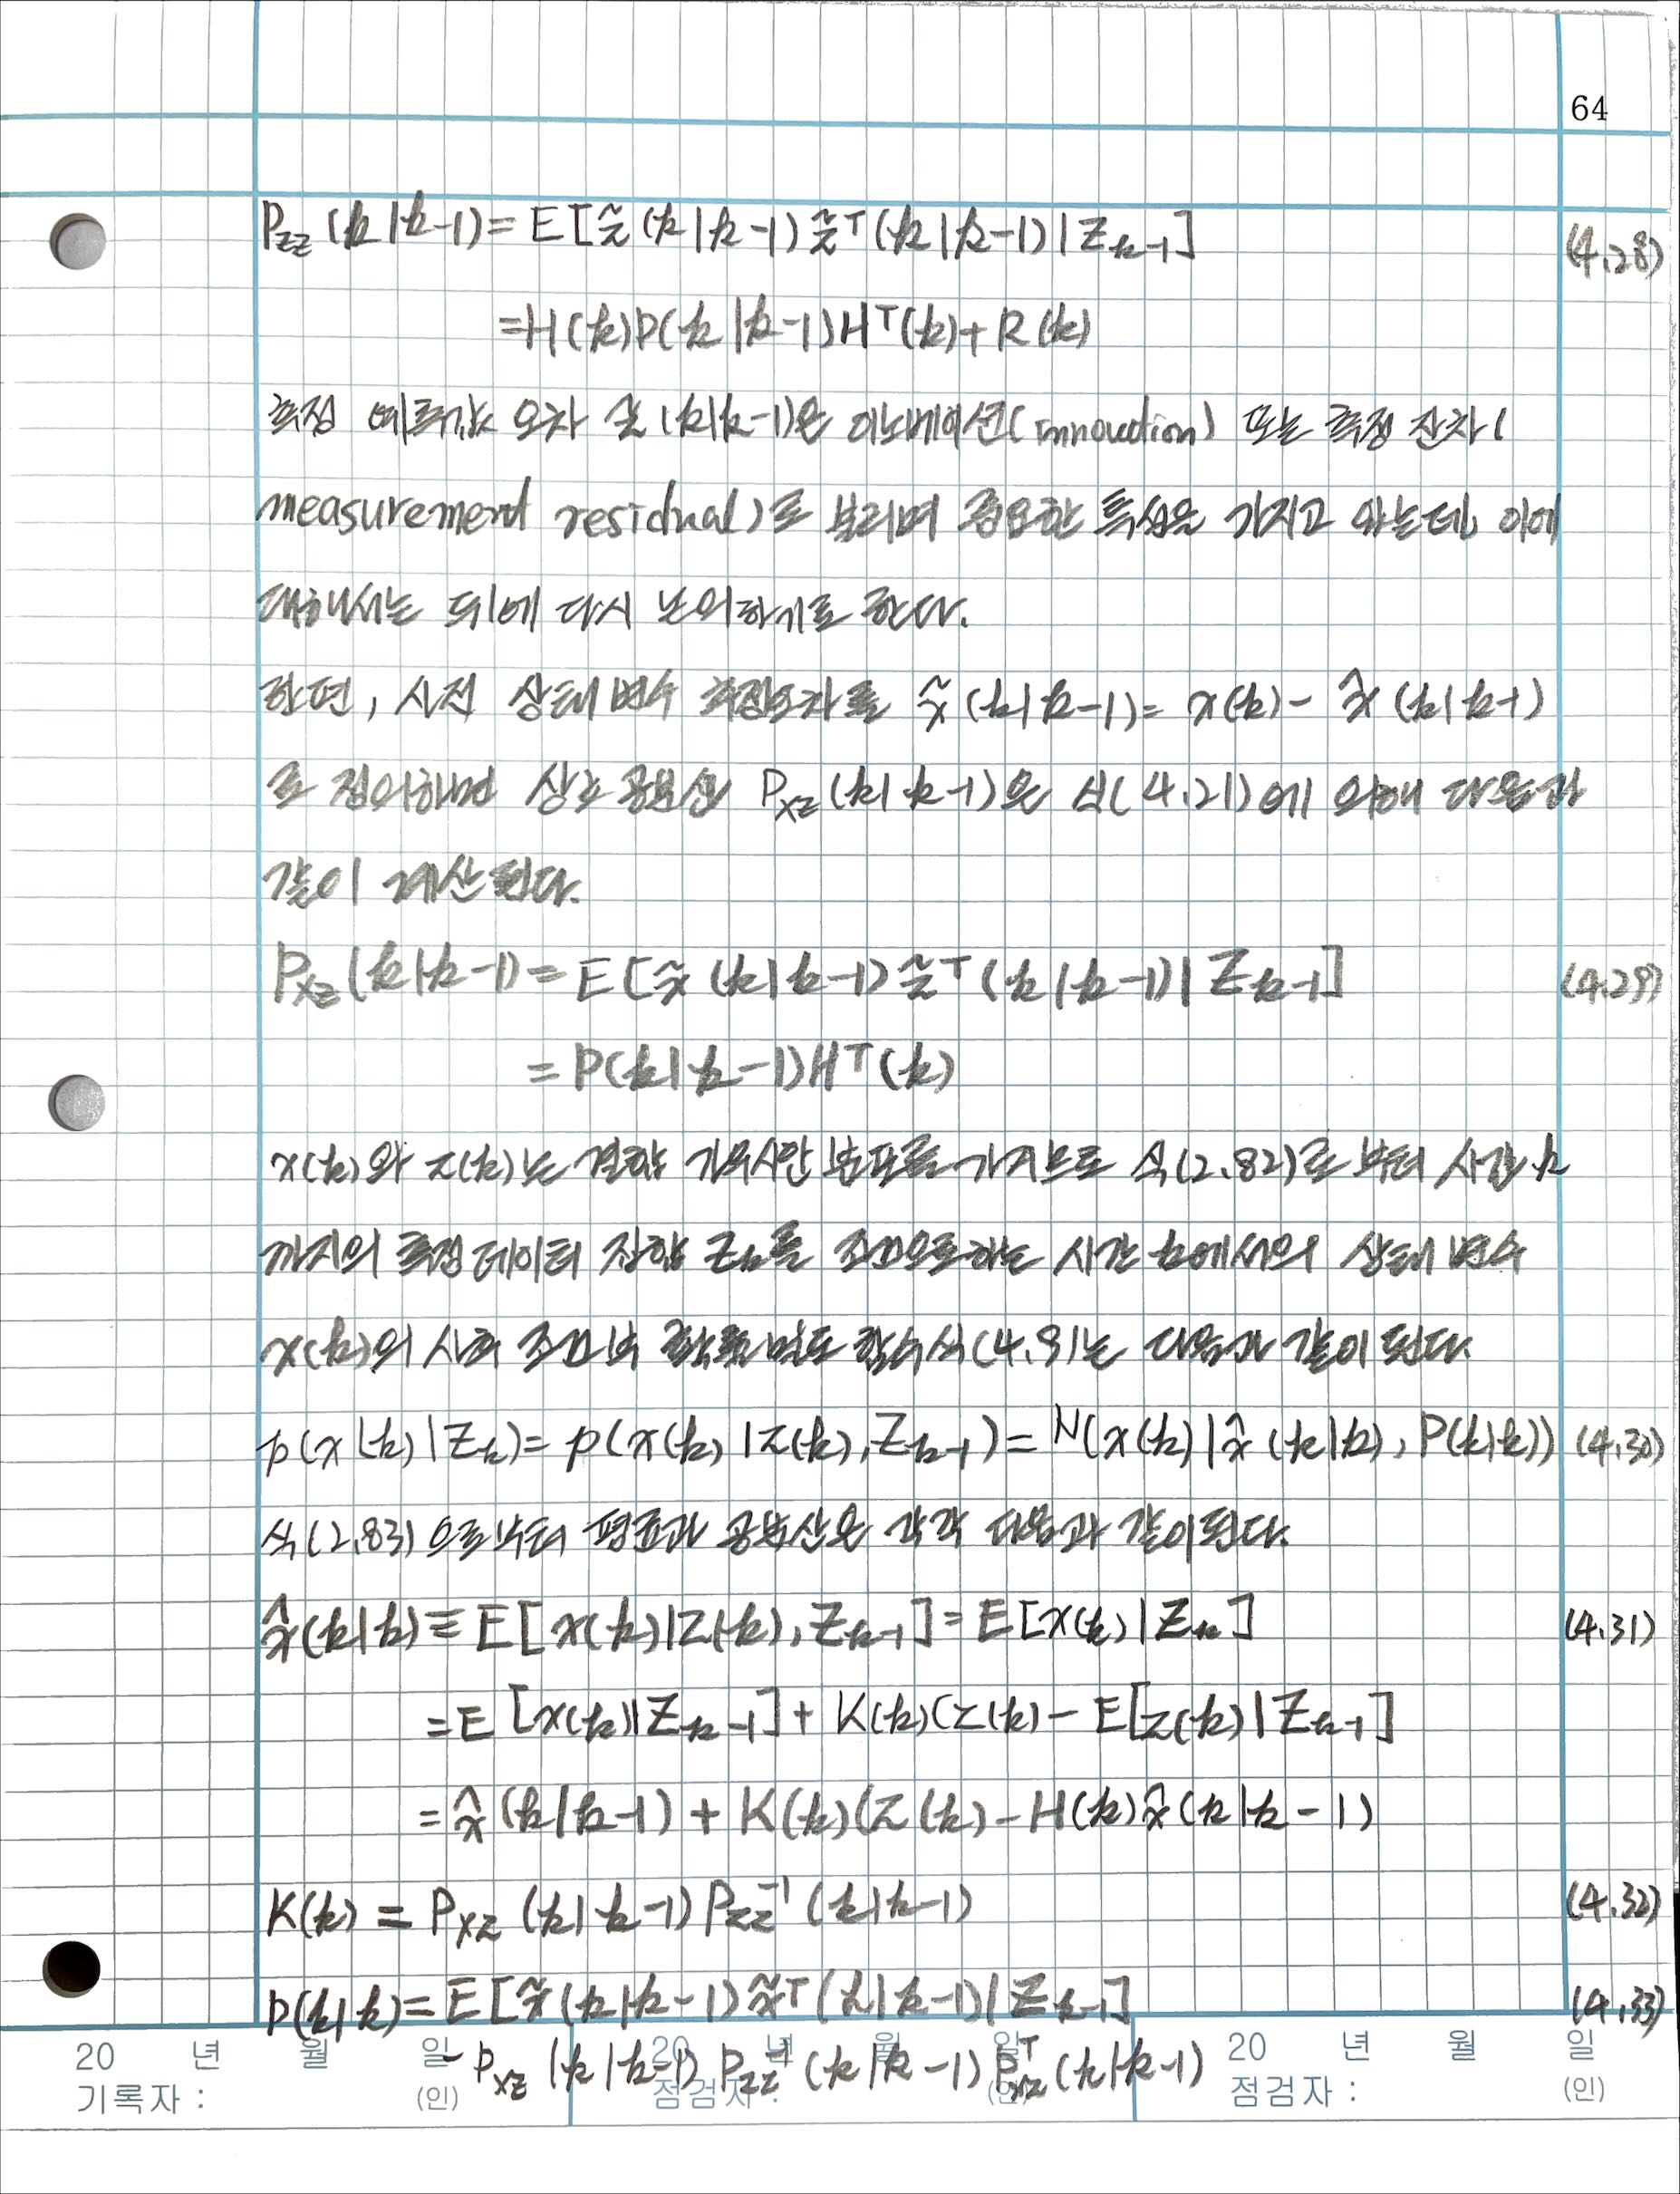 64
P_zz(k|k-1) = E[z̃(k|k-1) z̃^T(k|k-1) | Z_k-1] (4.28)
= H(k)P(k|k-1)H^T(k) + R(k)
측정 예측값 오차 z̃(k|k-1)은 이노베이션(innovation) 또는 측정 잔차(
measurement residual)로 불리며 중요한 특성을 가지고 있는데, 이에
대해서는 뒤에 다시 논의하기로 한다.
한편, 사전 상태변수 추정오차를 x̃(k|k-1) = x(k) - x̂(k|k-1)
로 정의하면 상호 공분산 P_xz(k|k-1)은 식(4.21)에 의해 다음과
같이 계산된다.
P_xz(k|k-1) = E[x̃(k|k-1) z̃^T(k|k-1) | Z_k-1] (4.29)
= P(k|k-1)H^T(k)
x(k)와 z(k)는 결합 가우시안 분포를 가지므로 식(2.82)로 부터 시간 k
까지의 측정 데이터 집합 Z_k를 조건으로하는 시간 k에서의 상태변수
x(k)의 사후 조건부 확률밀도 함수식(4.9)는 다음과 같이 된다.
p(x(k)|Z_k) = p(x(k)|z(k), Z_k-1) = N(x(k)|x̂(k|k), P(k|k)) (4.30)
식(2.83)으로부터 평균과 공분산은 각각 다음과 같이된다.
x̂(k|k) ≡ E[x(k)|z(k), Z_k-1] = E[x(k)|Z_k] (4.31)
= E[x(k)|Z_k-1] + K(k)(z(k) - E[z(k)|Z_k-1]
= x̂(k|k-1) + K(k)(z(k) - H(k)x̂(k|k-1)
K(k) = P_xz(k|k-1) P_zz^-1(k|k-1) (4.32)
P(k|k) = E[x̃(k|k-1) x̃^T(k|k-1) | Z_k-1] (4.33)
- P_xz(k|k-1) P_zz^-1(k|k-1) P_xz^T(k|k-1)
20 년 월 일 20 년 월 일 20 년 월 일
기록자 : (인) 점검자 : (인) 점검자 : (인)